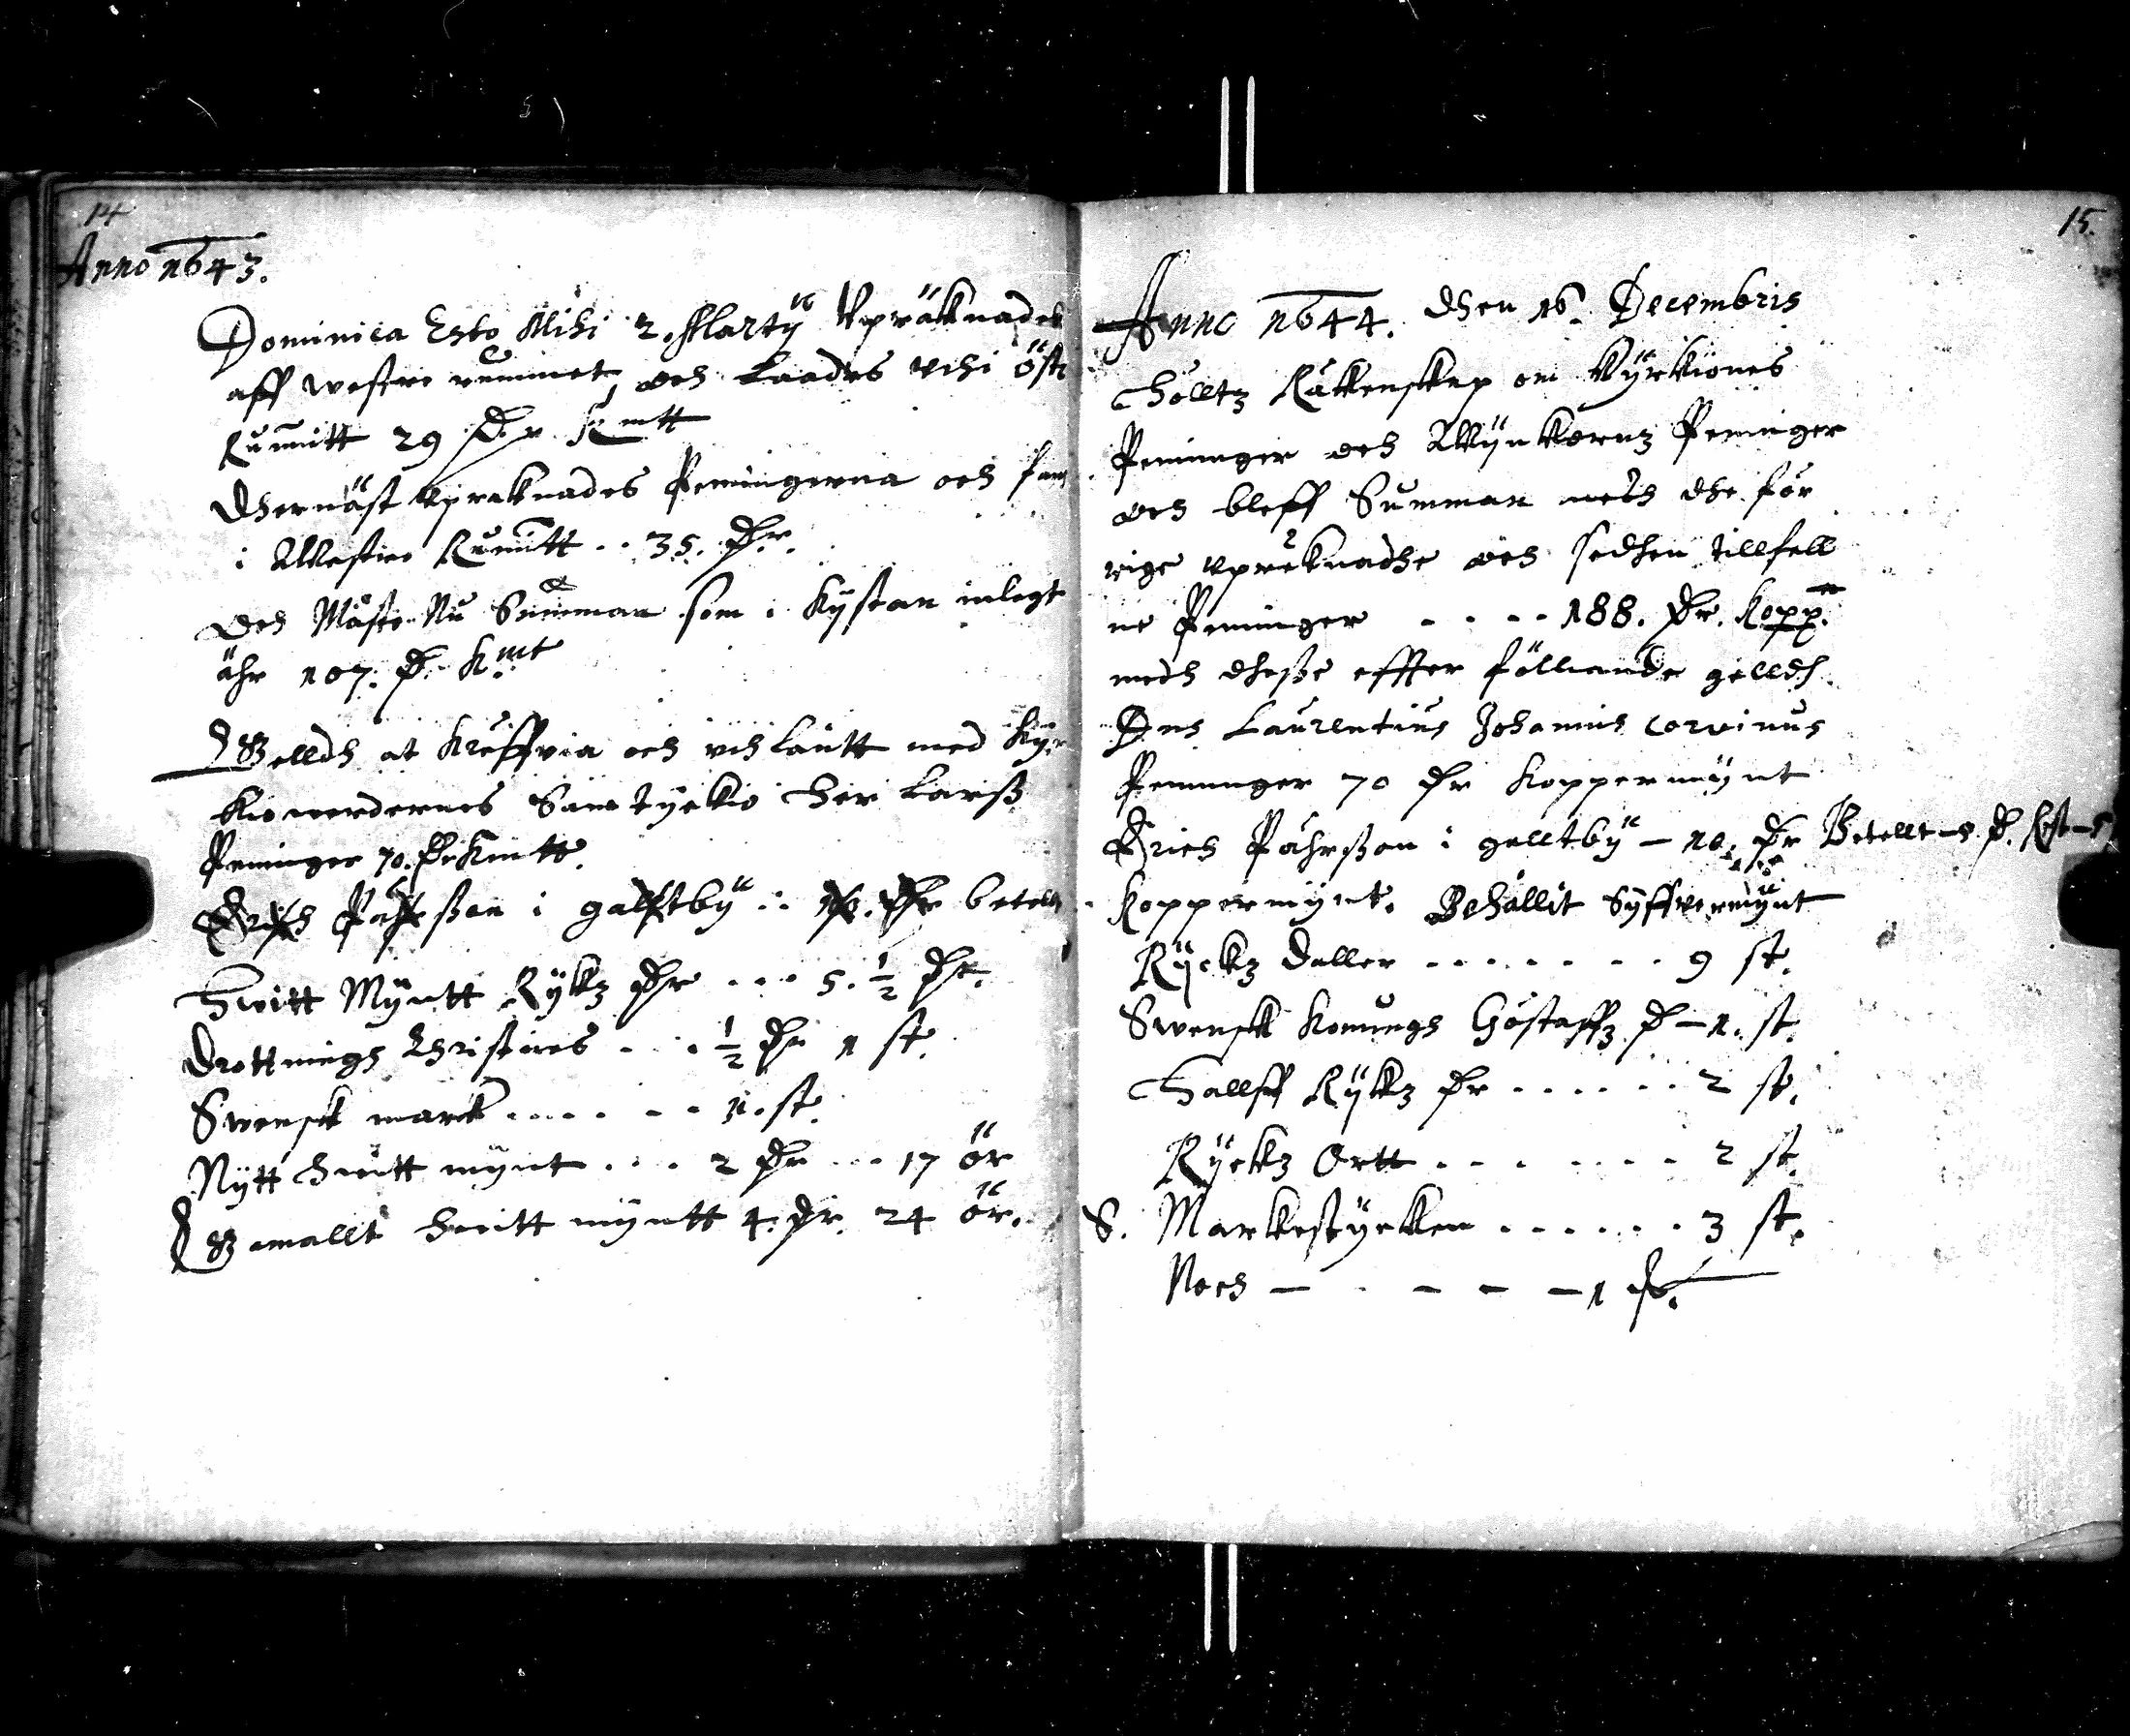 14
Anno 1643.
Dominica Esto Mihi 2. Martij Vpräknades
aff westre rummet och Laades vthi öst
Rummitt 29 Dr Kmtt
Dhernäst vpräknades Peningerna och fans
i Westre Rummitt .. 35. Dr.
och Måste Nu Summan som i Kystan inlagt
ähr 107. D. Kmt
Gelldh at kreffvia och vthlåntt med Kyr
kiowerdernes Samtyckio Her Larss
Peninger 70. Dr Kmtt.
Erich Påhrsson i galltby .. 10. Dr betallt
Hwitt Myntt Rykz Dr ... 5. ½ Dr.
Drottnings Christines ... ½ Dr 1 st.
Swensk marck ...... 1. st.
Nytt hwitt mynt ... 2 Dr ... 17 ör
Gamallt hwitt myntt 4. Dr. 24 ör.
15.
Anno 1644. dhen 16. Decembris
Höltz Räkenskap om Kyrkiones
Peninger och Wijnkornz Peninger
och bleff Summan medh dhe för
rige vpräknadhe och sedhen tillfall
ne Peninger .... 188. Dr. Kopp.
medh dhesse effter fölliande gelldh
Dns Laurentius Johannis Corvinus
Peninger 70 Dr Koppermynt
Erich Påhrsson i galltby – 10. Dr Betallt – 5 D. Rest – 5
Koppermynt. Behållit Sylffvermynt
Ryckz Daller ........ 9 st.
Swensk Konungh Göstaffz D – 1. st.
Hallff Rykz Dr ...... 2 st.
Ryckz Ortt ....... 2 st.
S. Markestycken ...... 3 st.
Noch – – – – – 1 st.